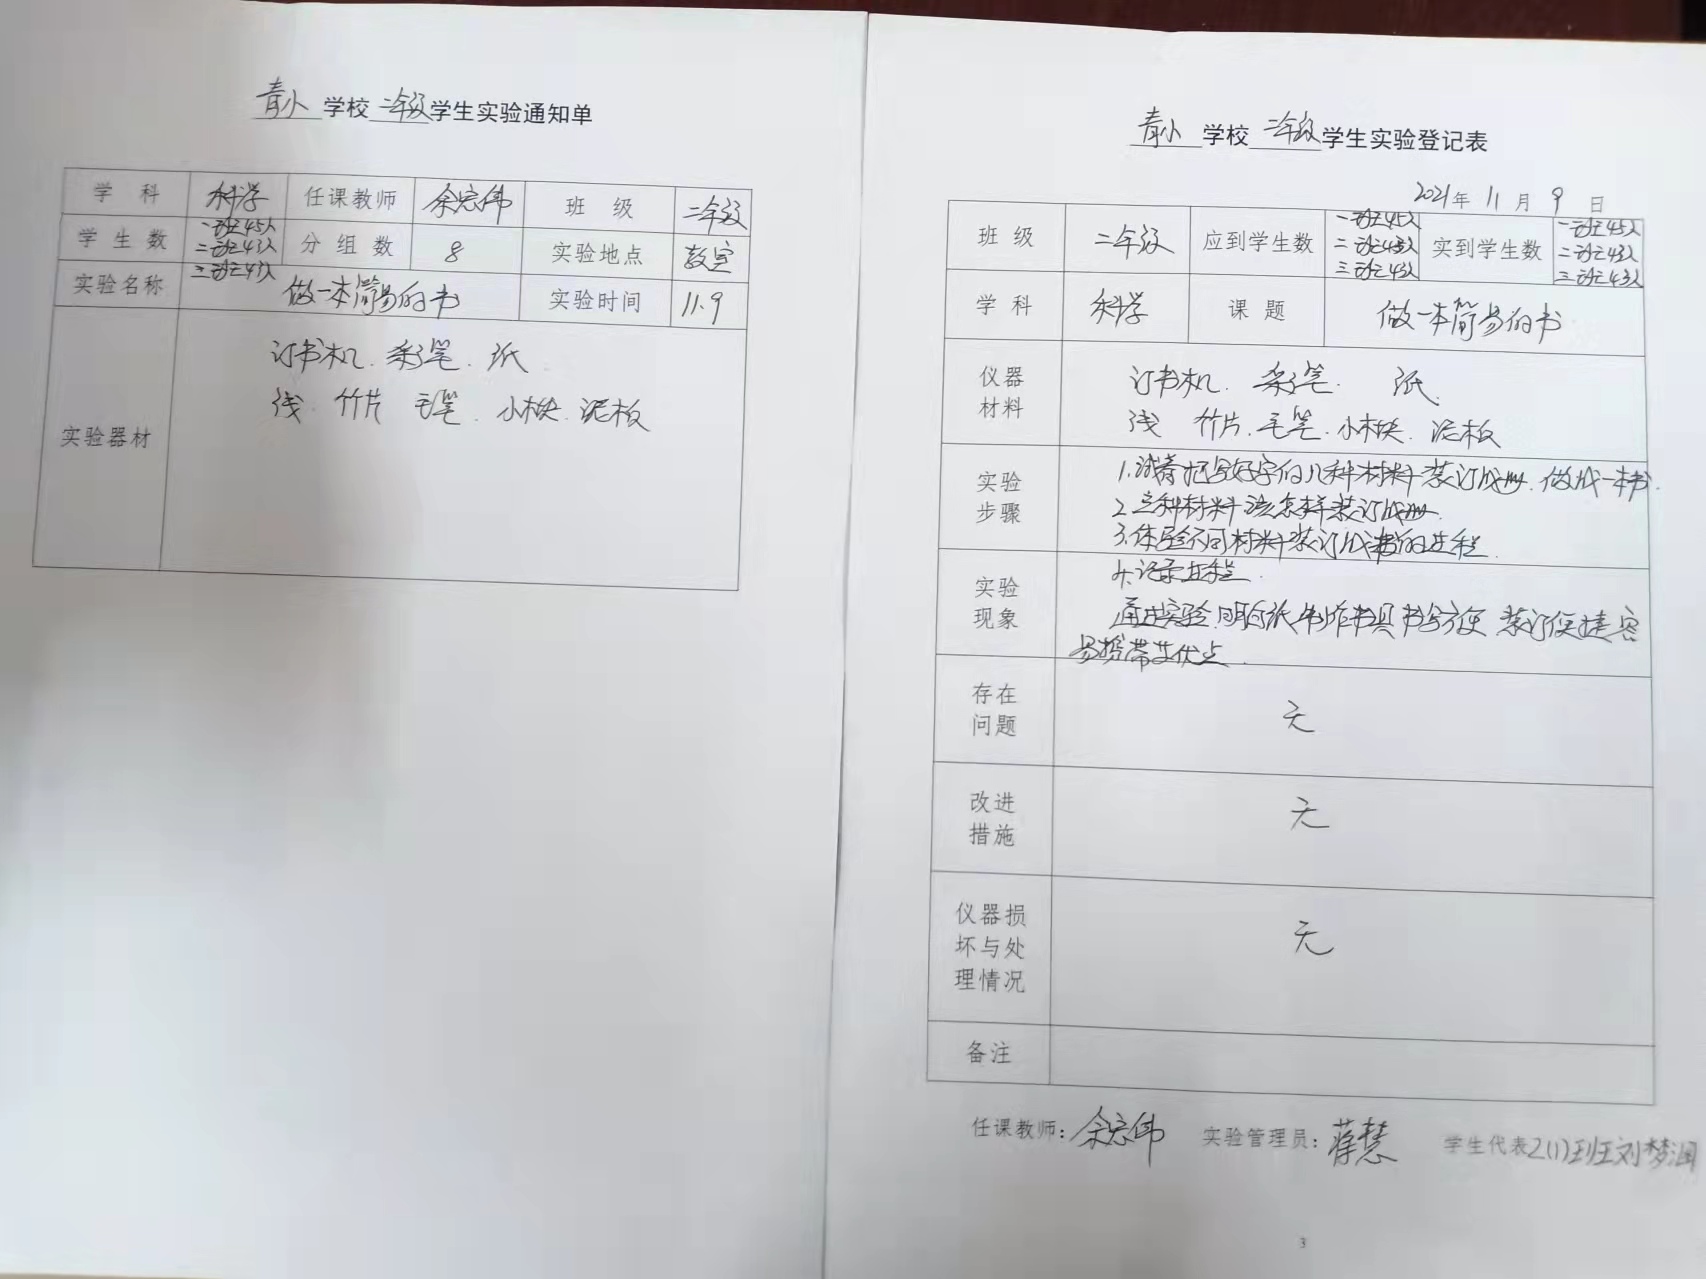 青小学校二年级学生实验通知单
学科 科学 任课教师 余宏伟 班级 二年级
学生数 一班45人 二班43人 三班43人 分组数 8 实验地点 教室
实验名称 做一本简易的书 实验时间 11.9
实验器材
订书机、彩笔、纸
线、竹片、毛笔、小木块、泥板
青小学校二年级学生实验登记表
2021年11月9日
班级 二年级 应到学生数 一班45人 二班43人 三班43人 实到学生数 一班45人 二班43人 三班43人
学科 科学 课题 做一本简易的书
仪器材料
订书机、彩笔、纸
线 竹片、毛笔、小木块、泥板
实验步骤
1.试着把写好字的几种材料装订成册、做成一本书.
2.三种材料该怎样装订成册.
3.体验不同材料装订成书的过程.
4.记录过程.
实验现象
通过实验,明白纸制作书具书写方便 装订便捷 容
易携带等优点.
存在问题 无
改进措施 无
仪器损坏与处理情况 无
备注
任课教师:余宏伟 实验管理员:蒋慧 学生代表2(1)班刘梦
3